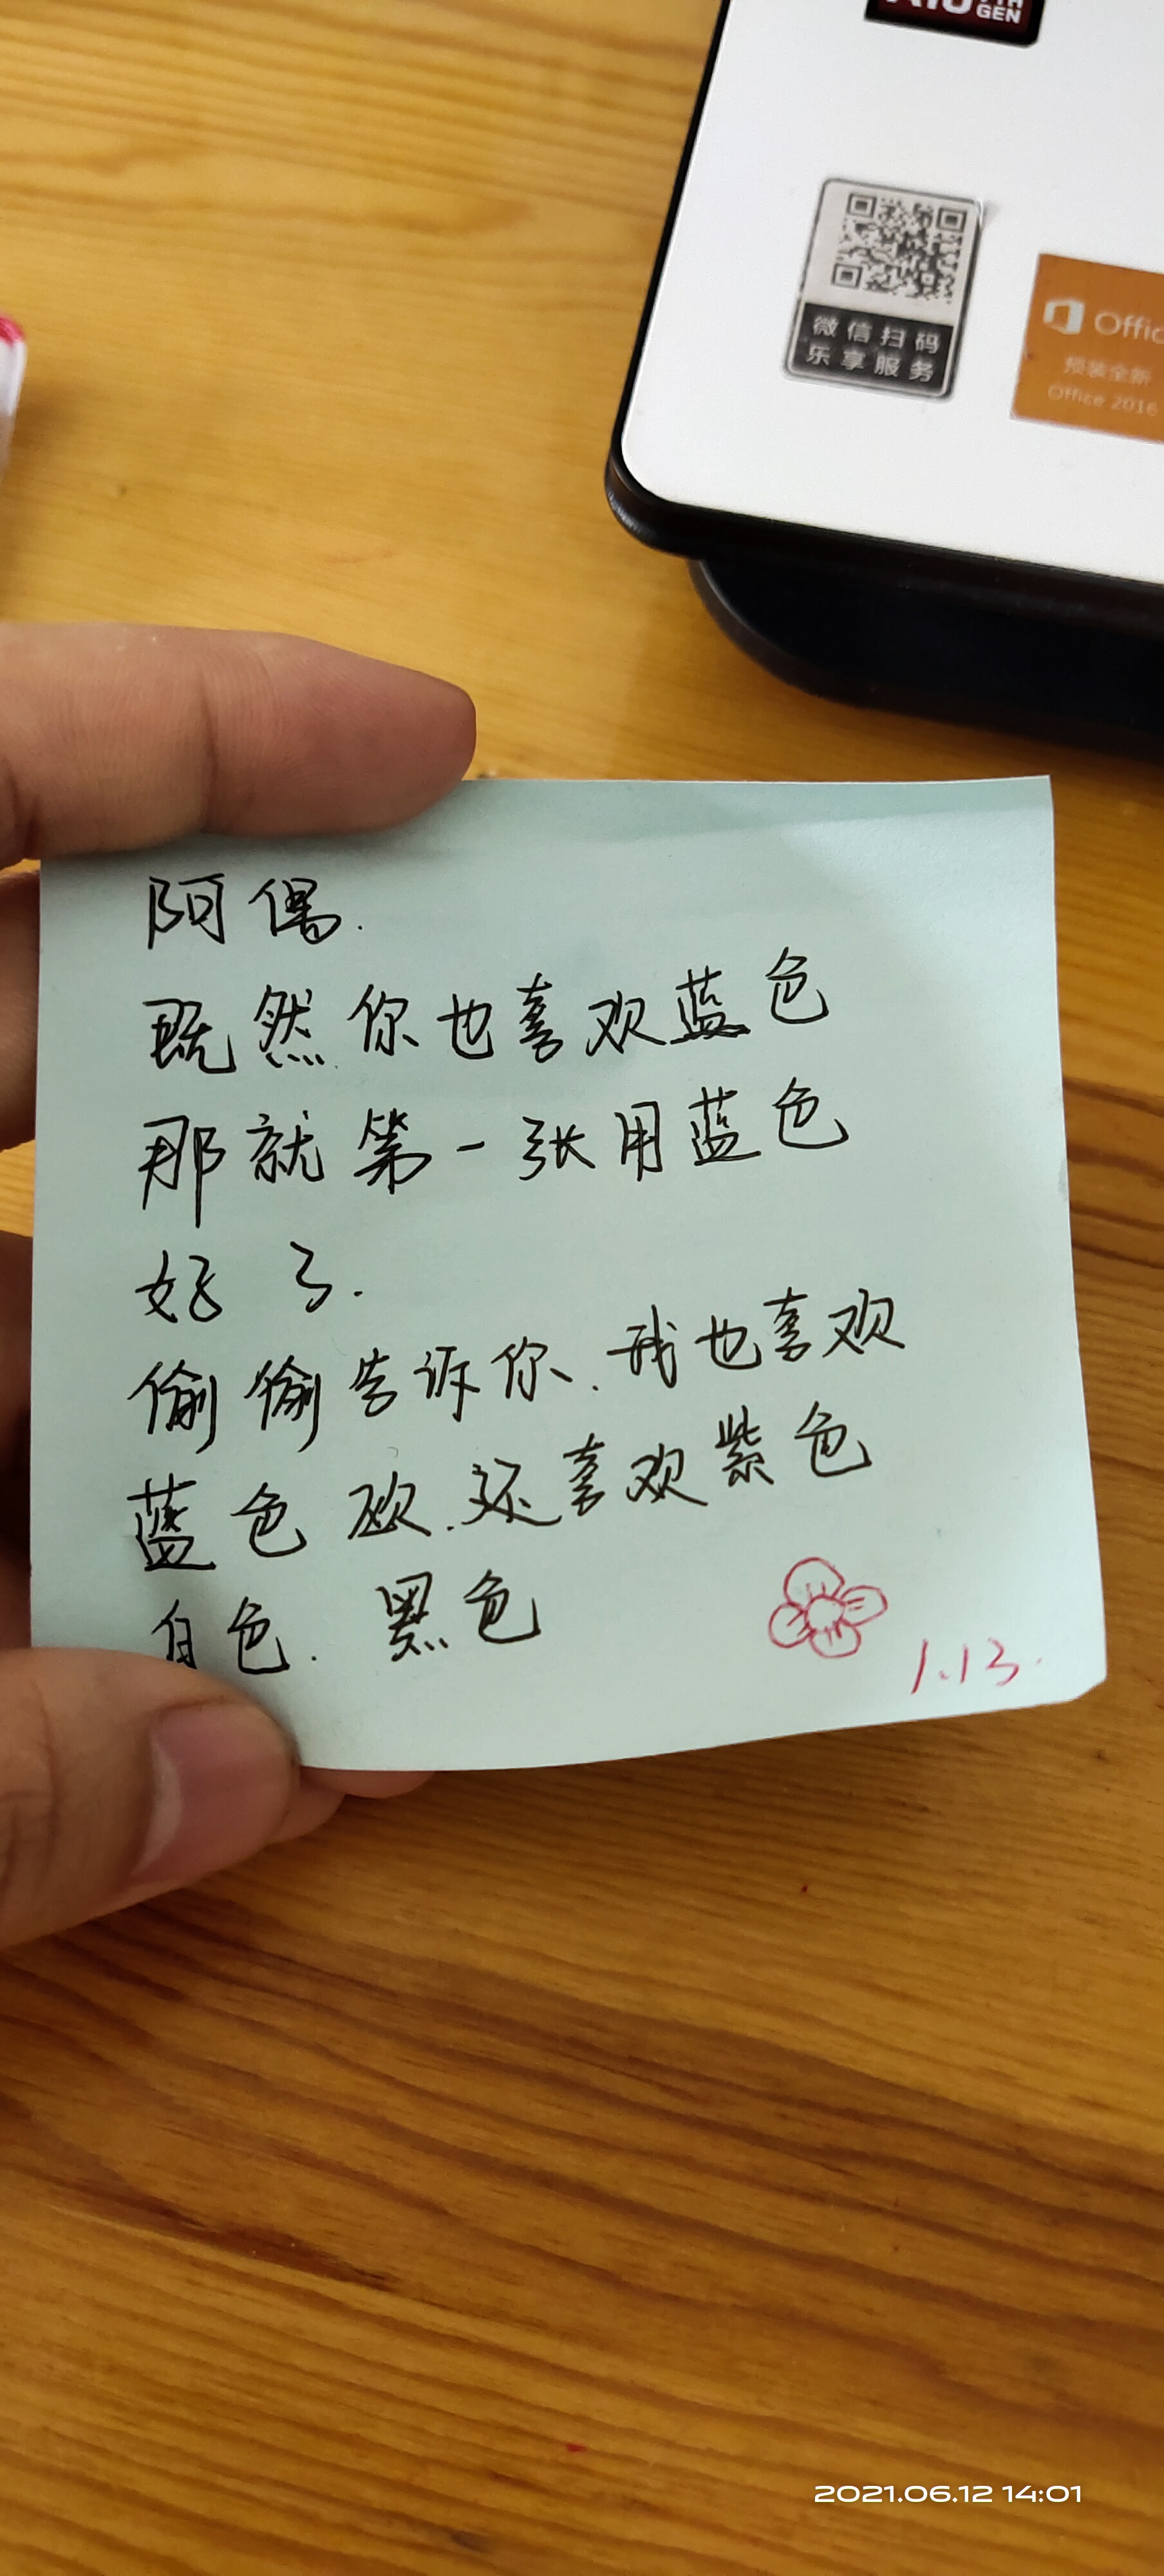 GEN
微信扫码
乐享服务
Offic
预装全新
Office 2016
阿偶.
既然你也喜欢蓝色
那就第一张用蓝色
好了.
偷偷告诉你.我也喜欢
蓝色欧.还喜欢紫色
白色.黑色
1.13.
2021.06.12 14:01